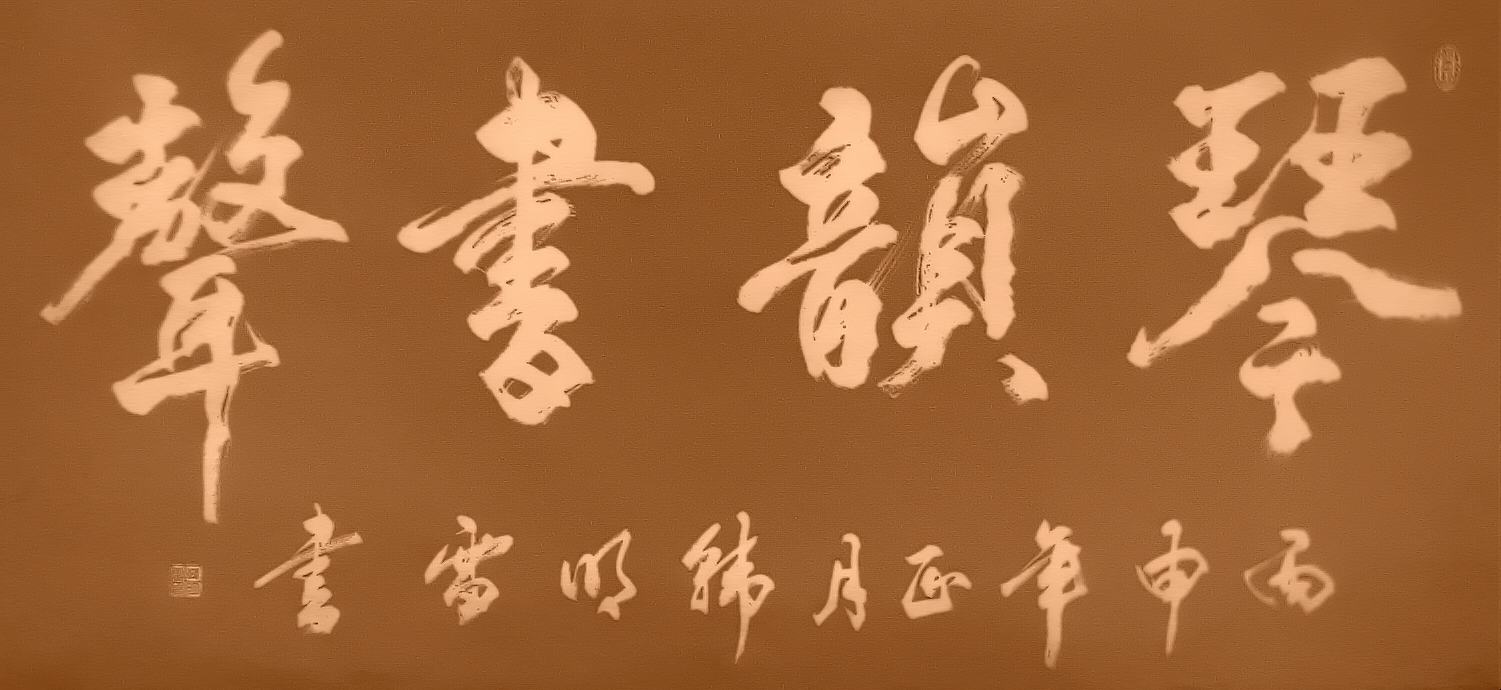 琴韻書聲
丙申年正月韩明雷書